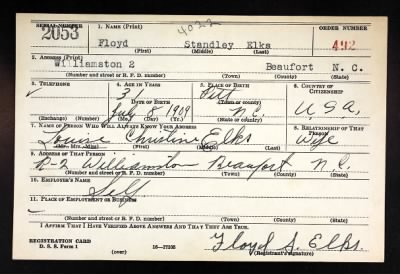 SERIAL NUMBER 1. NAME (Print) ORDER NUMBER
2053 4022 492
Floyd Standley Elks
(First) (Middle) (Last)
2. ADDRESS (Print)
Williamston 2 Beaufort N. C.
(Number and street or R. F. D. number) (Town) (County) (State)
3. TELEPHONE 4. AGE IN YEARS 5. PLACE OF BIRTH 6. COUNTRY OF CITIZENSHIP
31 Pitt
DATE OF BIRTH (Town or county)
July 8 1909 N.C. U.S.A.
(Exchange) (Number) (Mo.) (Day) (Yr.) (State or country)
7. NAME OF PERSON WHO WILL ALWAYS KNOW YOUR ADDRESS 8. RELATIONSHIP OF THAT PERSON
Louise Christine Elks Wife
(Mr., Mrs., Miss) (First) (Middle) (Last)
9. ADDRESS OF THAT PERSON
R-2 Williamston Beaufort N.C.
(Number and street or R. F. D. number) (Town) (County) (State)
10. EMPLOYER'S NAME
Self
11. PLACE OF EMPLOYMENT OR BUSINESS
(Number and street or R. F. D. number) (Town) (County) (State)
I AFFIRM THAT I HAVE VERIFIED ABOVE ANSWERS AND THAT THEY ARE TRUE.
REGISTRATION CARD
D. S. S. Form 1 (over) 16-17105 Floyd S. Elks
(Registrant's signature)